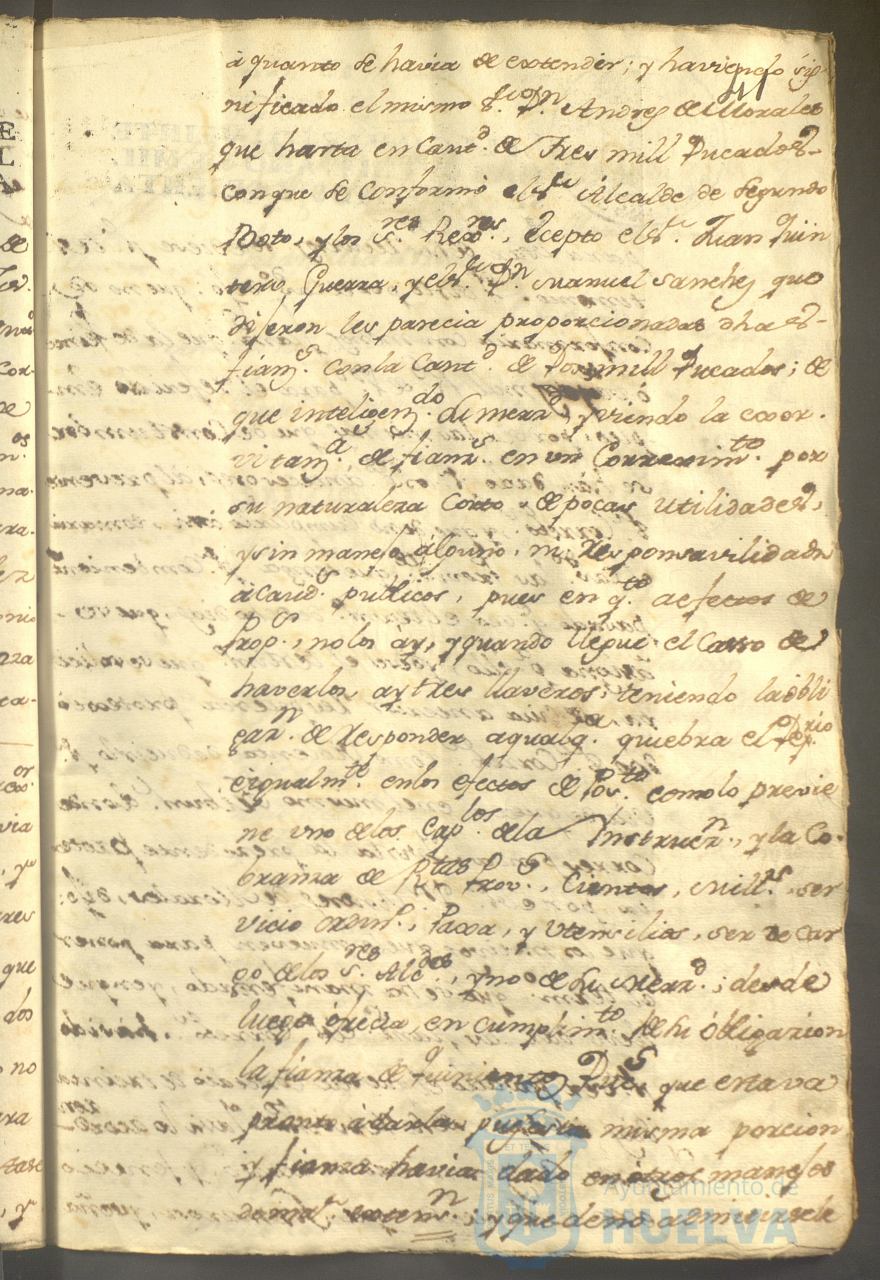 à quanto se havia de extender; y haviendo sig-
nificado el mismo Sr. Dn. Andres de Morales
que hasta en Cantd. de Tres mill Ducados-
con que se Conformò el Sr. Alcalde de segundo
Voto, y los Sres. Rexres., ecepto el Sr. Juan Quin
tero Guerra, y el Sr. Dn. Manuel Sanchez que
dijeron les parecia proporcionadas dhas
fianzs. con la Cantd. de Dos mill Ducados; de
que inteligendo. su merzd. y viendo la exor-
vitanza. de fianzs. en un Correximto. por
su naturaleza Corto, de pocas utilidades,
y sin manejo alguno, ni Responsavilidad
à Caud. publicos, pues en qto. a efectos de
Props., no los ay, y quando llegue el Casso de
haverlos, ay tres llaveros, teniendo la obli
gazn. de Responder a qualqa. quiebra el Deprio.
e igualmte. en los efectos de Posto. como lo previe
ne uno de los Caplos. de la Instruczn., y la Co-
branza de Rtas Provs., Cientos, Mills., ser
vicio ordinro., Paxa, y Utensilios, ser de car
go de los Sres. Aldes., y no de su Merzd.; desde
luego ofrecia, en cumplimto. de su òbligazion
la fianza de quinientos Ducs. que estava
pronto à darla, pues la misma porcion
y fianza havia dado en otros manejos
de mas. extenn.; y que de no admitirsele
Ayuntamiento de
HUELVA